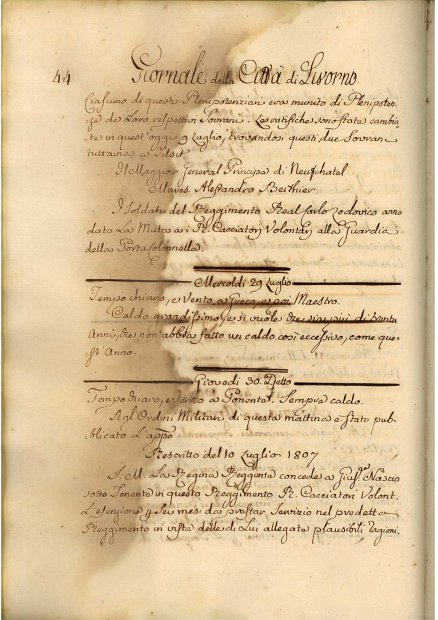 44 Giornale della Città di Livorno
Ciascuno di questi Plenipotenziari era munito di Plenipoten-
ze de Loro respettivi Sovrani. Le ratifiche sono state cambia-
te in quest'oggi 9 Luglio, trovandosi questi due Sovrani
tuttavia a Tilsit
Il Maggior General Principe di Neufchatel
Mares. Alessandro Berthier.
I Soldati del Reggimento Real Carlo Lodovico anno
dato La Muta a i R. Cacciatori Volontarj alla Guardia
della Porta Colonnella.
Mercoldì 29 Luglio
Tempo chiaro, e Vento a Greco, e poi Maestro.
Caldo grandissimo, e si vuole che sia più di trenta
Anni, che non abbia fatto un caldo così eccessivo, come que-
st'Anno.
Giovedì 30. Detto
Tempo chiaro, e Vento a Ponente. Sempre caldo.
Agl'Ordini Militari di questa mattina è stato pub-
blicato L'app.o
Rescritto del 10 Luglio 1807
S. M. La Regina Reggente concede a Gius.e
sotto Tenente in questo Reggimento R. Cacciatori Volont.
L'esenzione p Sei mesi da prestar Servizio nel predetto
Reggimento in vista delle di Lui allegate plausibili ragioni.